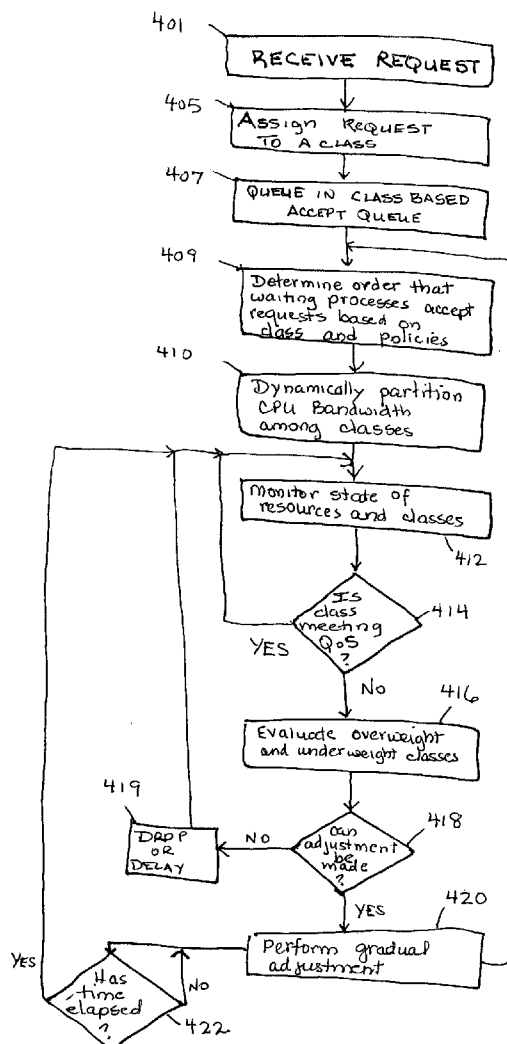 401
RECEIVE REQUEST
405
ASSIGN REQUEST
TO A CLASS
407
QUEUE IN CLASS BASED
ACCEPT QUEUE
409
Determine order that
waiting processes accept
requests based on
class and policies
410
Dynamically partition
CPU Bandwidth
among classes
monitor state of
resources and classes
412
Is
class
meeting
QoS
?
414
YES
NO
416
Evaluate overweight
and underweight classes
419
DROP
OR
DELAY
NO
can
adjustment
be
made
?
418
YES
420
Perform gradual
adjustment
YES
Has
time
elapsed
?
NO
422